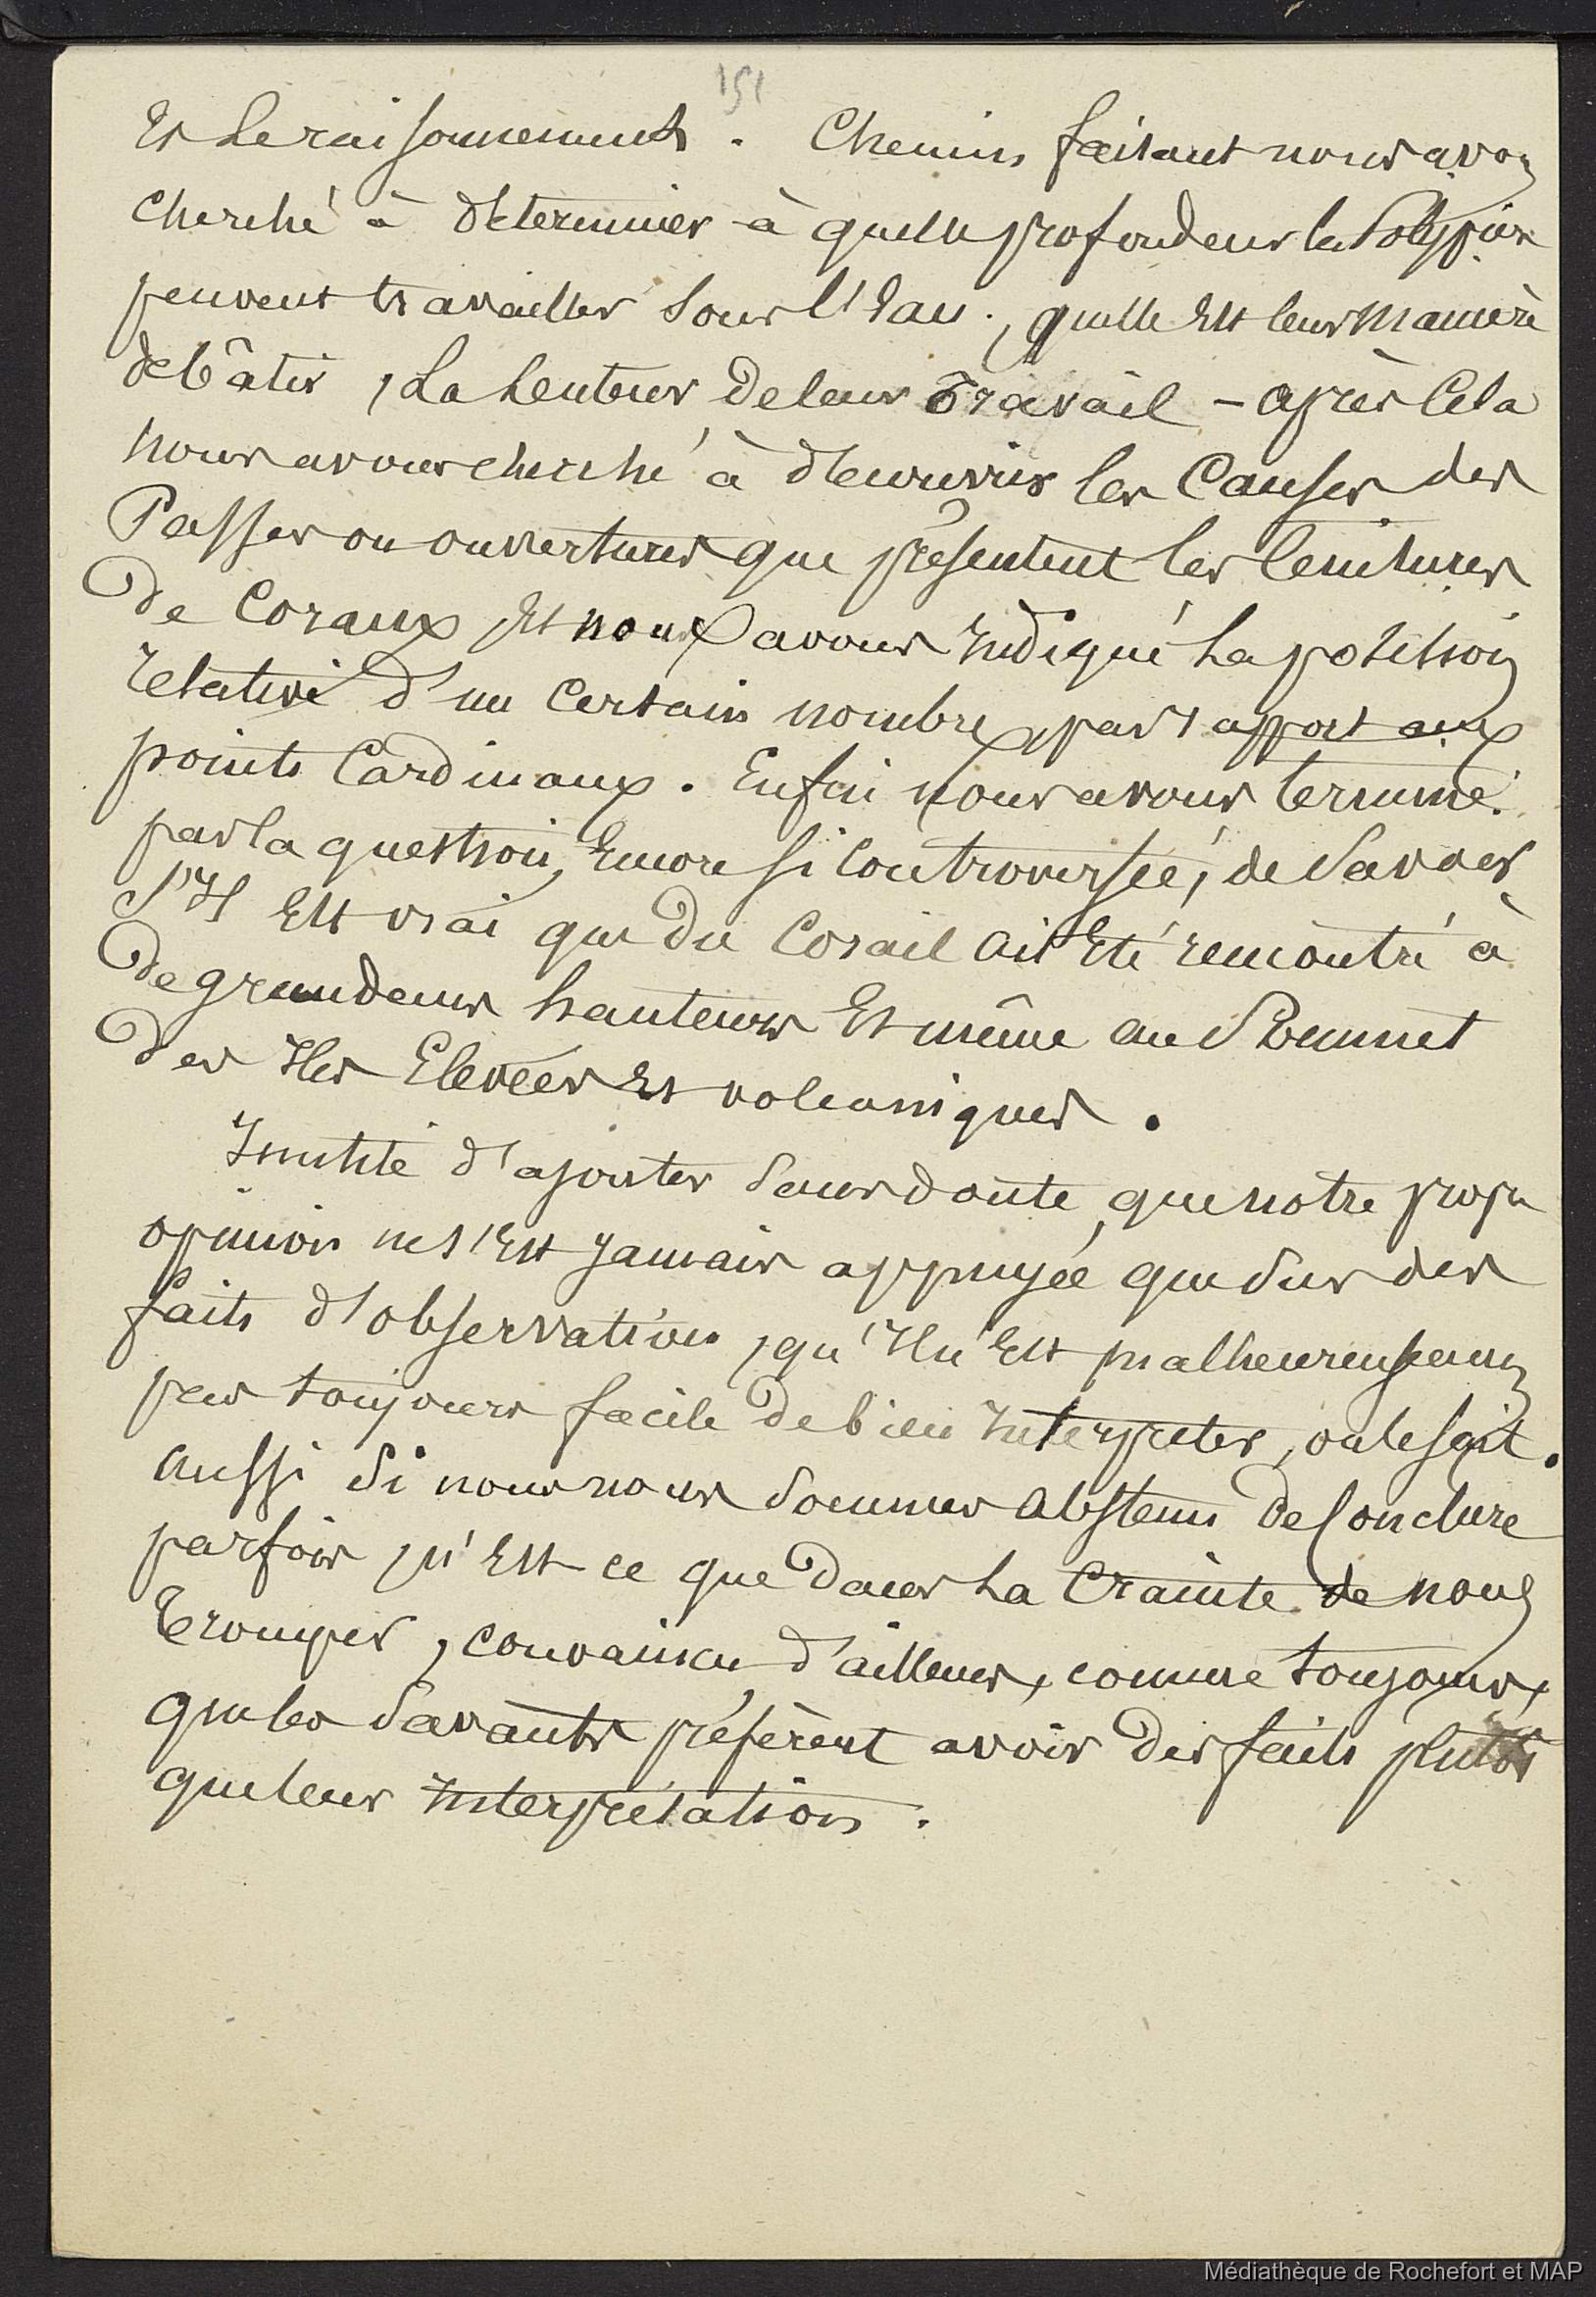 151
Et le raisonnement. Chemin faisant nous avons
cherché à déterminer à quelle profondeur les Polypiers
peuvent travailler sous l'Eau, quelle Est leur manière
de bâtir, La Lenteur de leur Travail – après Cela
nous avons cherché à découvrir les Causes des
Passes ou ouvertures que présentent les Ceintures
de Coraux, Et nous avons Indiqué La position
relative d'un Certain nombre, par rapport aux
points Cardinaux. Enfin nous avons terminé
par la question, Encore si Controversée, de Savoir
S'Il Est vrai que du Corail ait Eté rencontré à
de grandeurs hauteurs Et même au Sommet
des Iles Elevées Et volcaniques.
Inutile d'ajouter Sans doute, que notre propre
opinion ne s'Est Jamais appuyée que Sur des
faits d'observation, qu'Il n'Est malheureusement
pas toujours facile de bien Interpréter, on le sait.
Aussi Si nous nous Sommes Abstenu de Conclure
parfois, n'Est-ce que dans La Crainte de nous
Tromper, convaincu d'ailleurs, comme toujours,
que les Savants préfèrent avoir des faits plutôt
que leur Interprétation.
Médiathèque de Rochefort et MAP